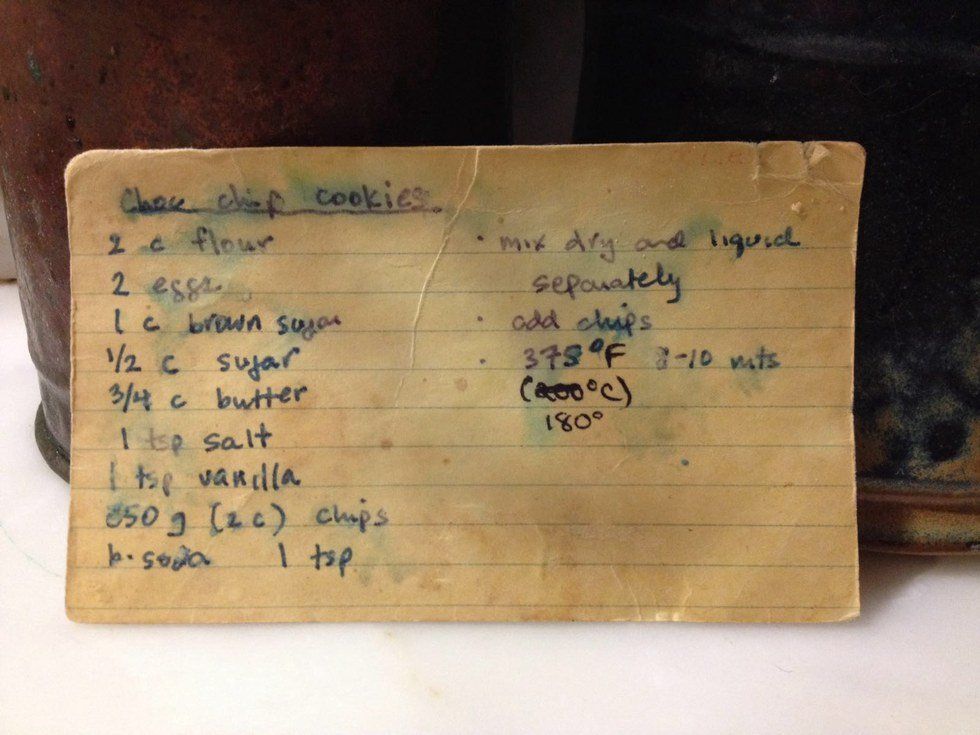 Choc chip cookies
2 c flour
2 eggs
1 c brown sugar
1/2 c sugar
3/4 c butter
1 tsp salt
1 tsp vanilla
350 g (2 c) chips
b. soda 1 tsp
· mix dry and liquid
separately
· add chips
· 375°F 8-10 mts
(200°C)
180°